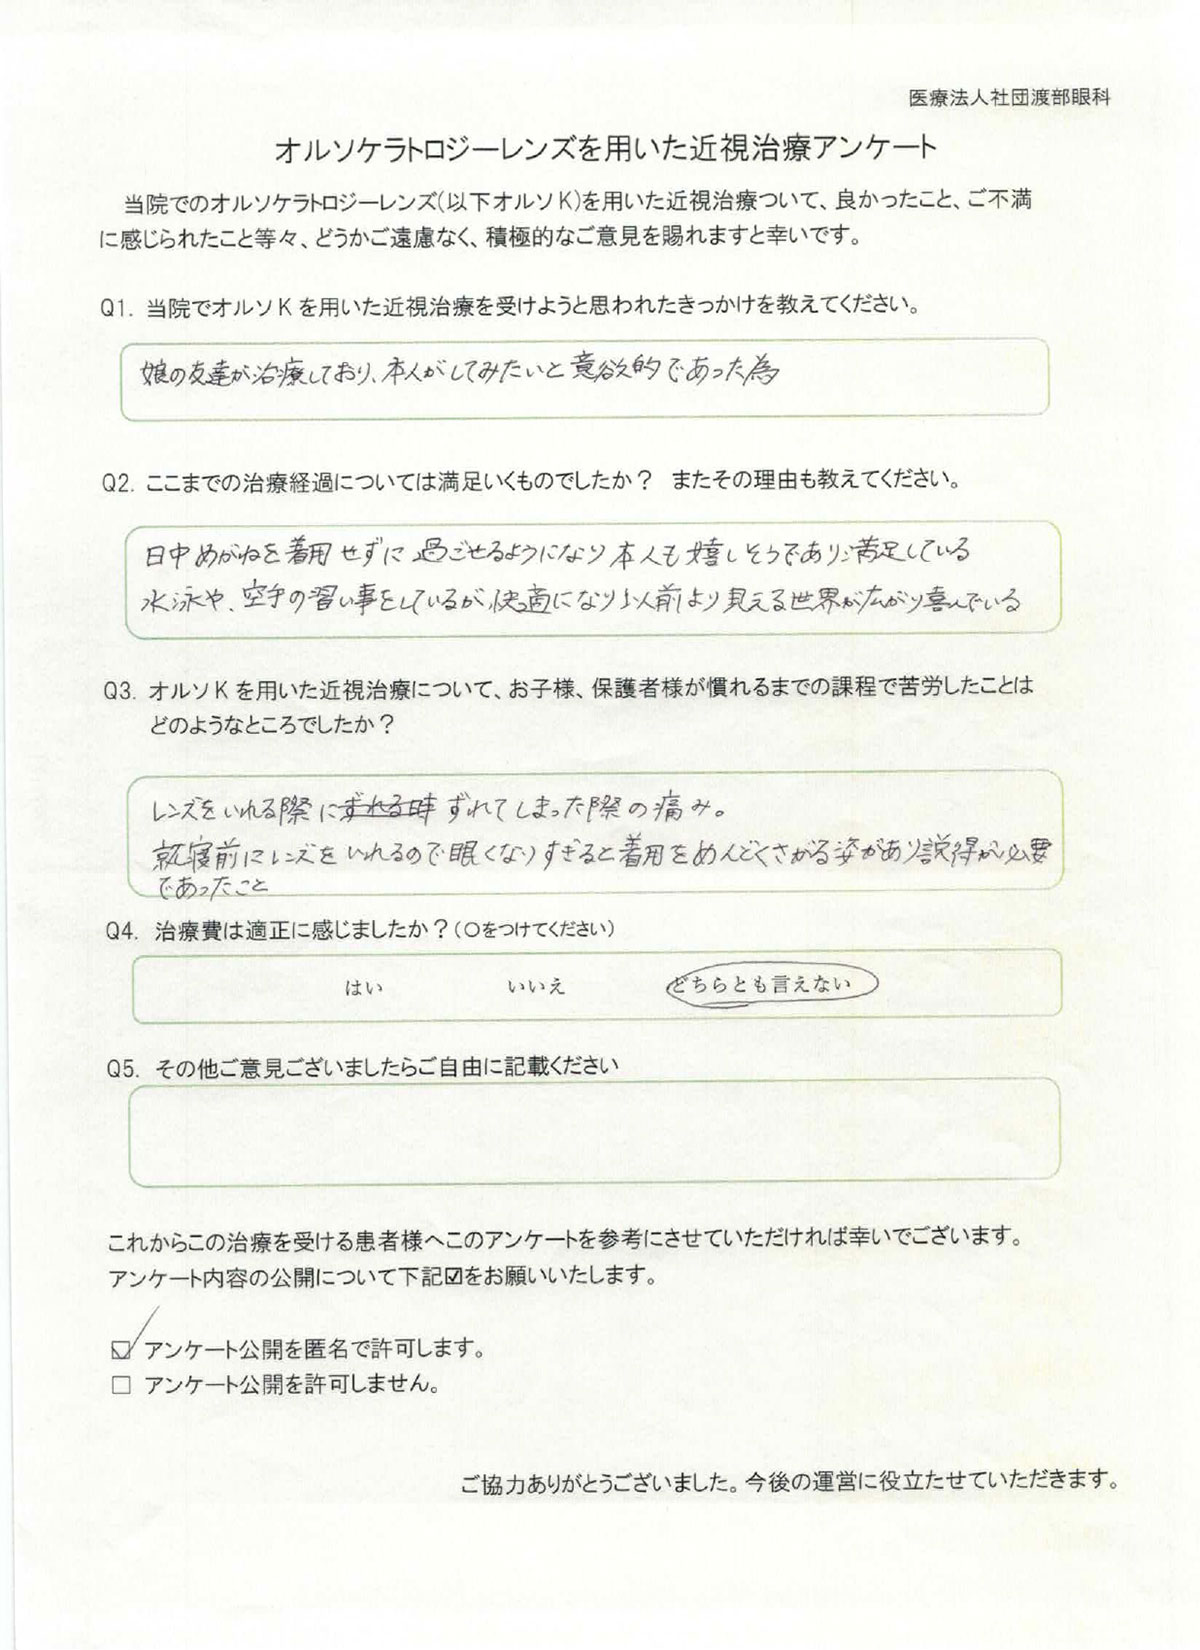 医療法人社団渡部眼科
オルソケラトロジーレンズを用いた近視治療アンケート
当院でのオルソケラトロジーレンズ(以下オルソK)を用いた近視治療ついて、良かったこと、ご不満
に感じられたこと等々、どうかご遠慮なく、積極的なご意見を賜れますと幸いです。
Q1. 当院でオルソKを用いた近視治療を受けようと思われたきっかけを教えてください。
娘の友達が治療しており、本人がしてみたいと意欲的であった為
Q2. ここまでの治療経過については満足いくものでしたか？ またその理由も教えてください。
日中めがねを着用せずに過ごせるようになり本人も嬉しそうであり満足している
水泳や、空手の習い事をしているが、快適になり以前より見える世界が広がり喜んでいる
Q3. オルソKを用いた近視治療について、お子様、保護者様が慣れるまでの課程で苦労したことは
どのようなところでしたか？
レンズをいれる際にずれる時ずれてしまった際の痛み。
就寝前にレンズをいれるので眠くなりすぎると着用をめんどくさがる姿があり説得が必要
であったこと
Q4. 治療費は適正に感じましたか？(○をつけてください)
はい いいえ どちらとも言えない
Q5. その他ご意見ございましたらご自由に記載ください
これからこの治療を受ける患者様へこのアンケートを参考にさせていただければ幸いでございます。
アンケート内容の公開について下記☑をお願いいたします。
☑ アンケート公開を匿名で許可します。
□ アンケート公開を許可しません。
ご協力ありがとうございました。今後の運営に役立たせていただきます。